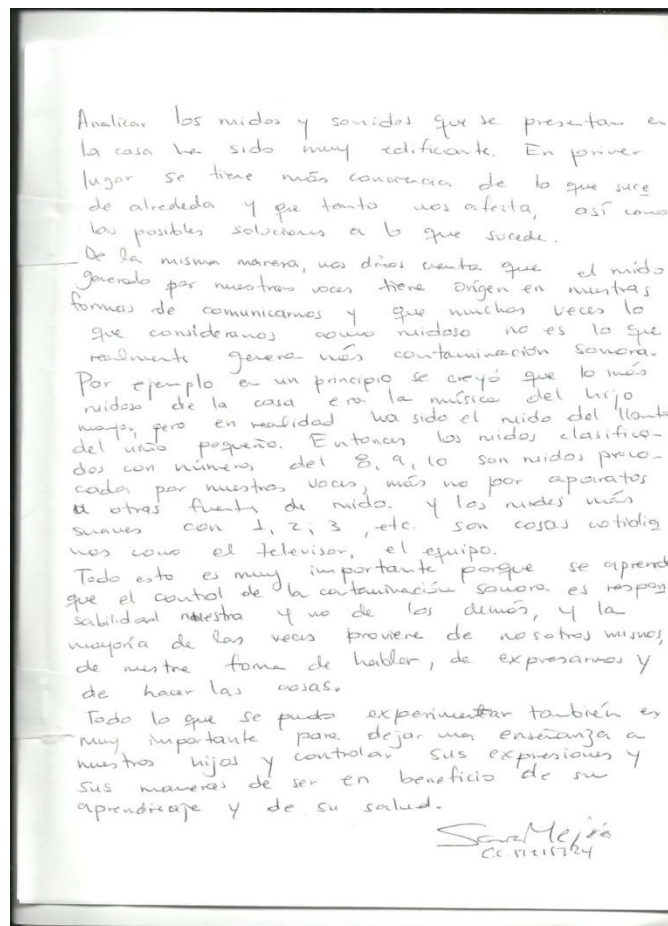 Analizar los ruidos y sonidos que se presentan en
la casa ha sido muy edificante. En primer
lugar se tiene más conciencia de lo que suce
de alrededa y que tanto nos afecta, así como
las posibles soluciones a lo que sucede.
De la misma manera, nos dimos cuenta que el ruido
generado por nuestras voces tiene origen en nuestras
formas de comunicarnos y que muchas veces lo
que consideramos como ruidoso no es lo que
realmente genera más contaminación sonora.
Por ejemplo en un principio se creyó que lo más
ruidoso de la casa era la música del hijo
mayor, pero en realidad ha sido el ruido del llanto
del niño pequeño. Entonces los ruidos clasifica-
dos con números del 8, 9, lo son ruidos provo-
cada por nuestras voces, más no por aparatos
u otras fuente de ruido. y los ruidos más
suaves con 1, 2, 3, etc. son cosas cotidia
nas como el televisor, el equipo.
Todo esto es muy importante porque se aprende
que el control de la contaminación sonora es respon
sabilidad nuestra y no de los demás, y la
mayoría de las veces proviene de nosotros mismos,
de nuestra forma de hablar, de expresarnos y
de hacer las cosas.
Todo lo que se pudo experimentar también es
muy importante para dejar una enseñanza a
nuestros hijos y controlar sus expresiones y
sus maneras de ser en beneficio de su
aprendizaje y de su salud.
Sara Mejía
C.C.